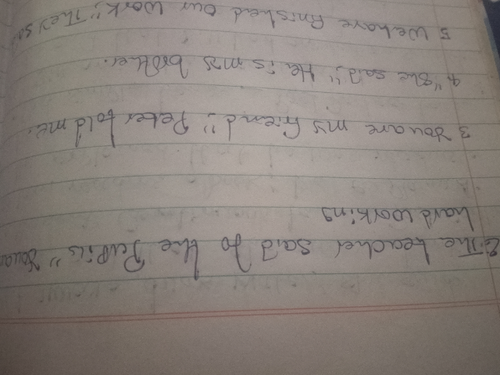 2. The teacher said to the Pupils "You are
hard working
3 You are my friend," Peter told me.
4 "She said," He is my brother.
5 We have finished our work," They sa